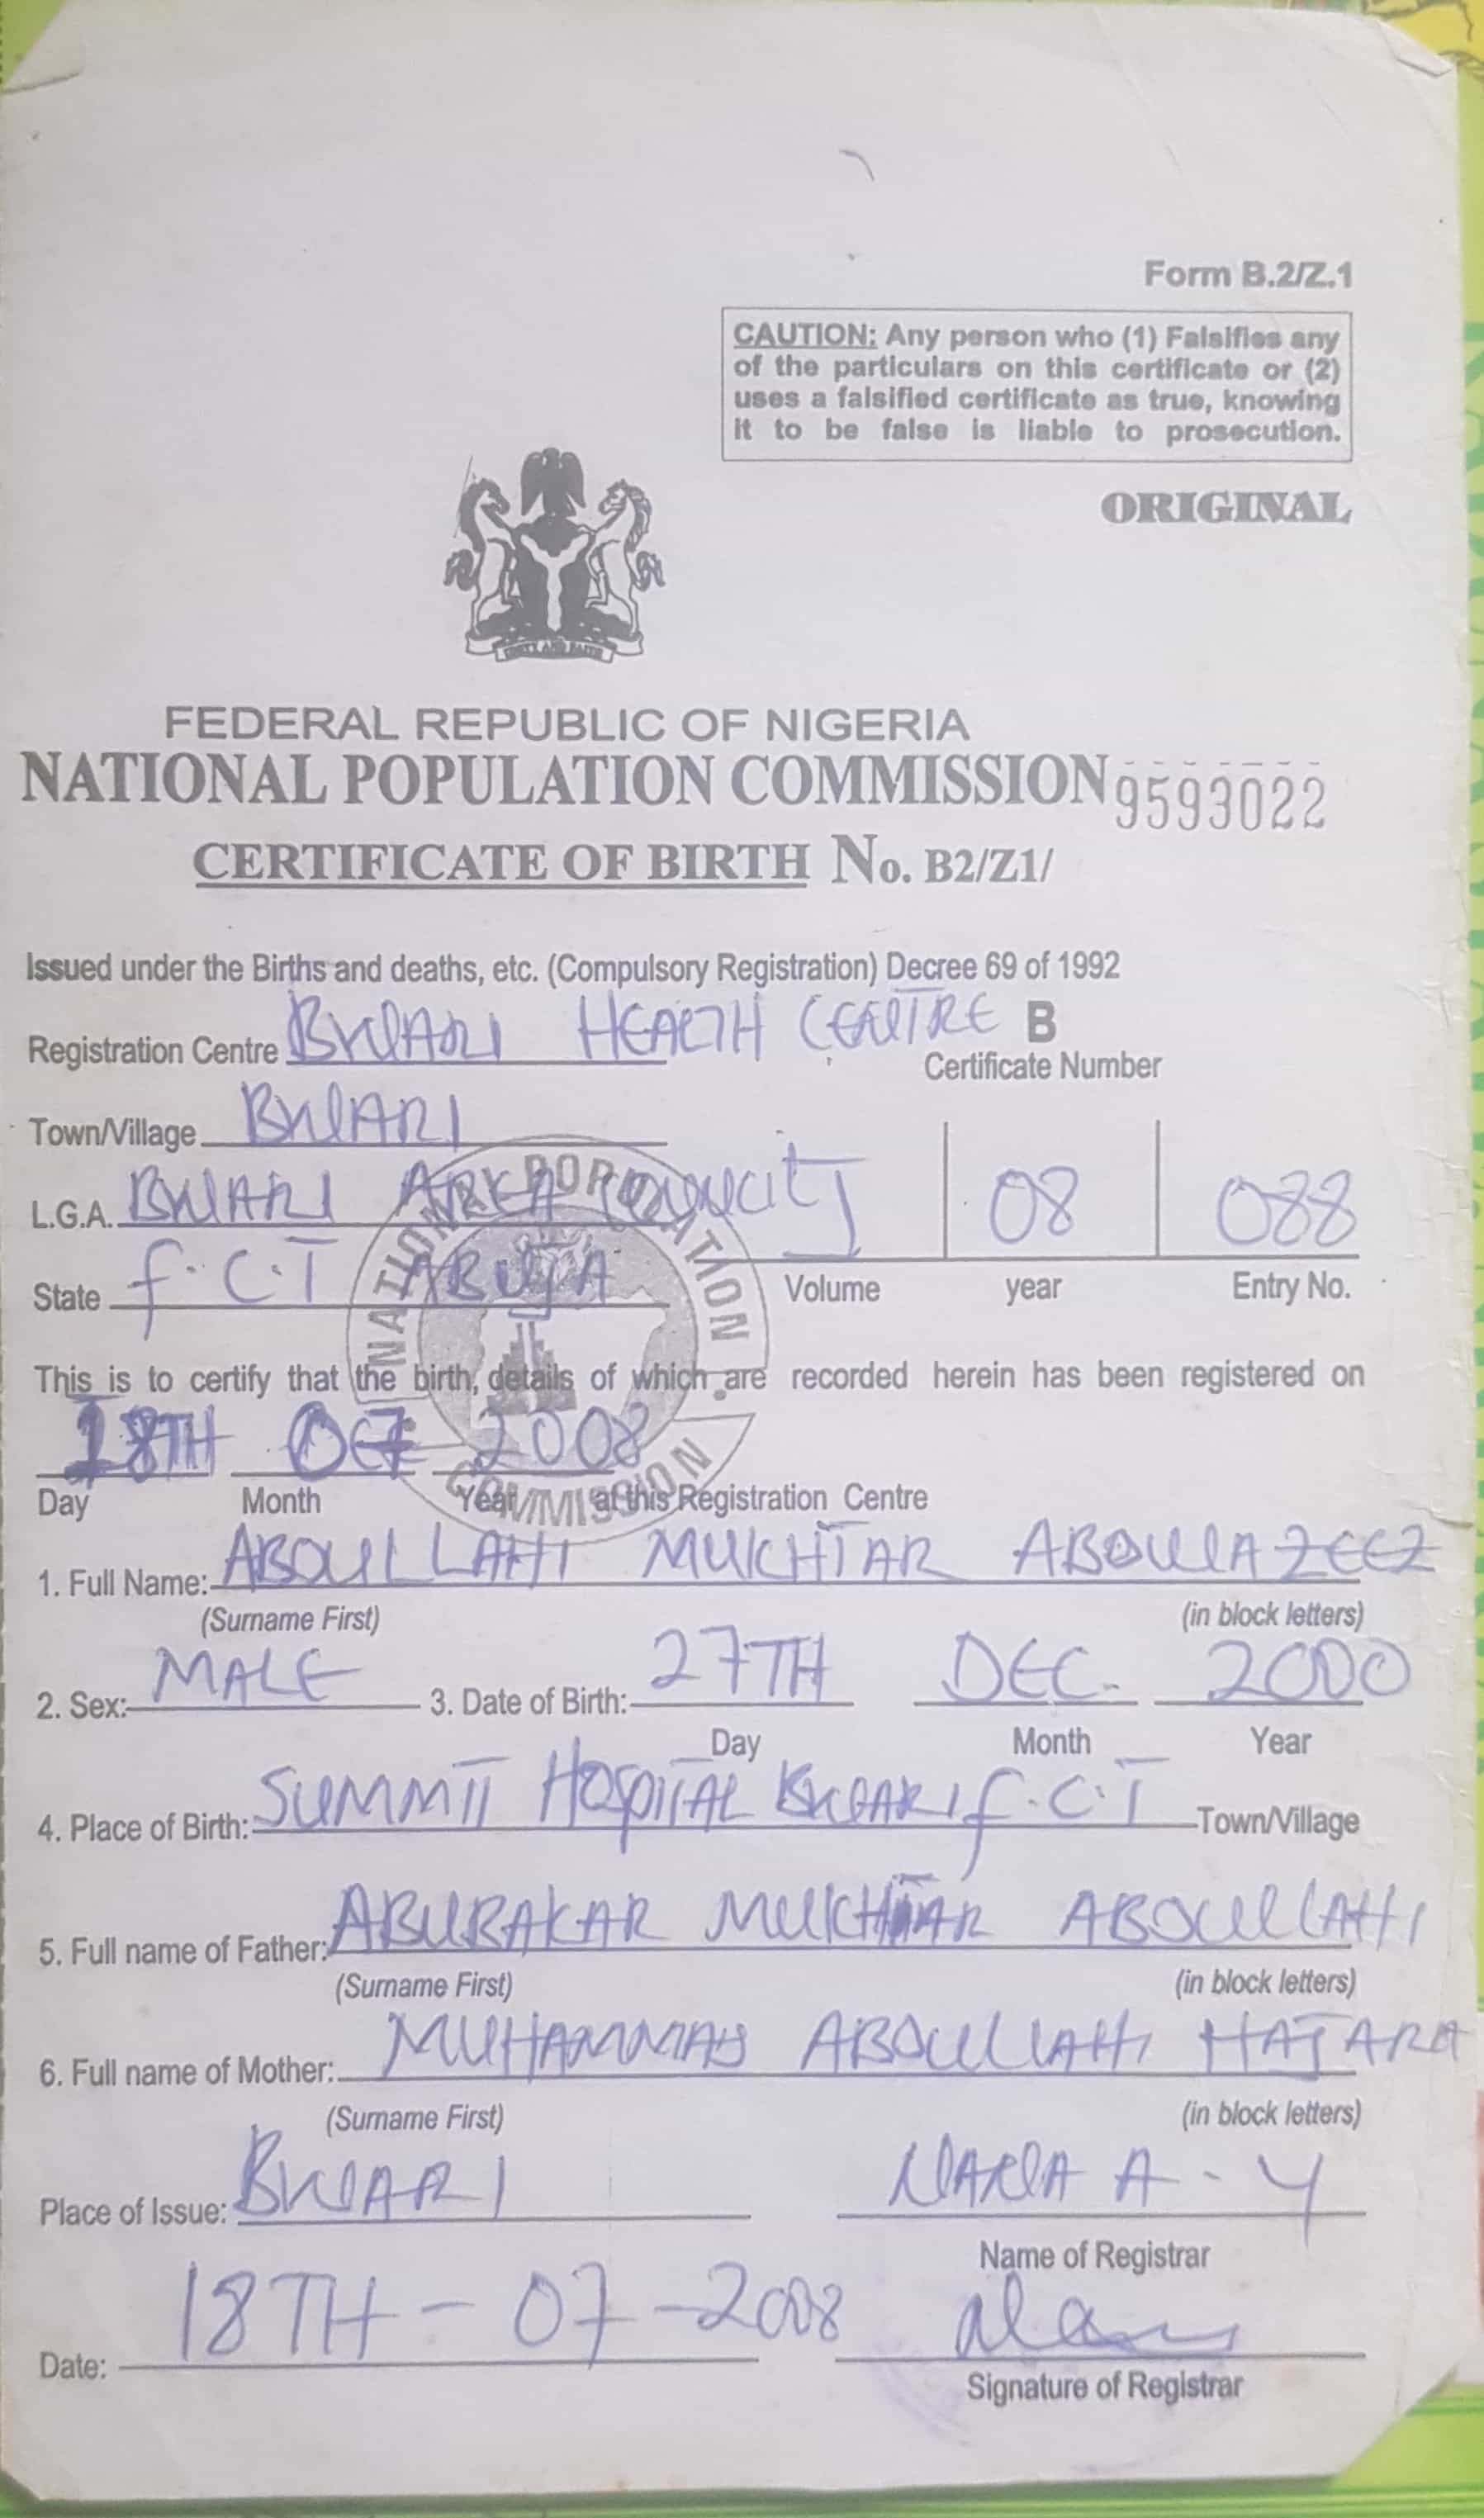 Form B.2/Z.1
CAUTION: Any person who (1) Falsifies any
of the particulars on this certificate or (2)
uses a falsified certificate as true, knowing
it to be false is liable to prosecution.
ORIGINAL
FEDERAL REPUBLIC OF NIGERIA
NATIONAL POPULATION COMMISSION 9593022
CERTIFICATE OF BIRTH No. B2/Z1/
Issued under the Births and deaths, etc. (Compulsory Registration) Decree 69 of 1992
Registration Centre BWARI HEALTH CENTRE B
Certificate Number
Town/Village BWARI
L.G.A. BWARI AREA COUNCIL 08 088
State F.C.T ABUJA Volume year Entry No.
NATIONAL POPULATION COMMISSION
This is to certify that the birth, details of which are recorded herein has been registered on
18TH 2008
Day Month Year at this Registration Centre
1. Full Name: ABDULLAHI MUKHTAR ABDULAZEEZ
(Surname First) (in block letters)
2. Sex: MALE 3. Date of Birth: 27TH DEC. 2000
Day Month Year
4. Place of Birth: SUMMIT HOSPITAL BWARI F.C.T Town/Village
5. Full name of Father: ABUBAKAR MUKHTAR ABDULLAHI
(Surname First) (in block letters)
6. Full name of Mother: MUHAMMAD ABDULLAHI HAJARA
(Surname First) (in block letters)
Place of Issue: BWARI A. Y
Name of Registrar
Date: 18TH - 07 - 2008
Signature of Registrar